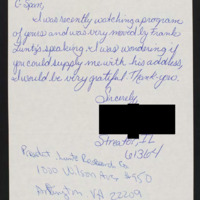 C-Span,
I was recently watching a program
of yours and was very moved by Frank
Luntz's speaking. I was wondering if
you could supply me with his address,
I would be very grateful. Thank you.
Sincerely,
Streator, IL
61364
Luntz Research Co
1000 Wilson Ave #950
Arlington, VA 22209